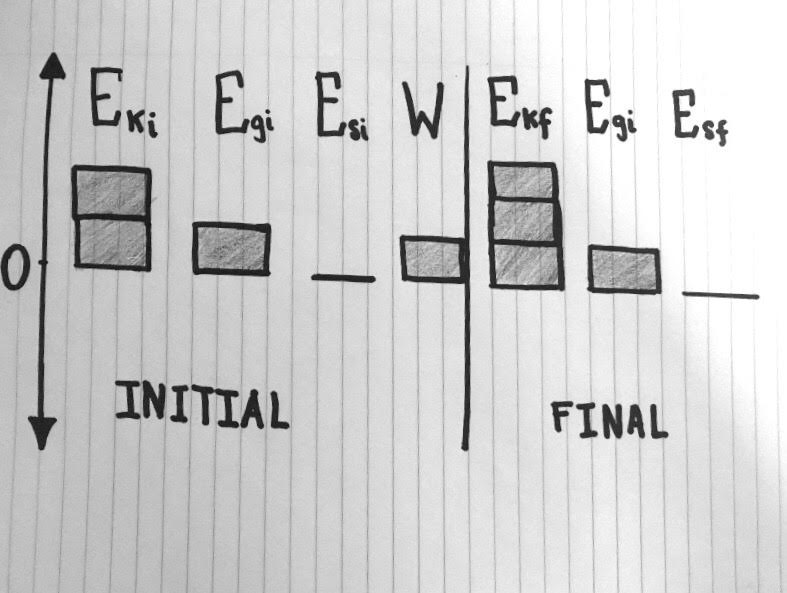 Eki Egi Esi W Ekf Egi Esf
0
INITIAL FINAL